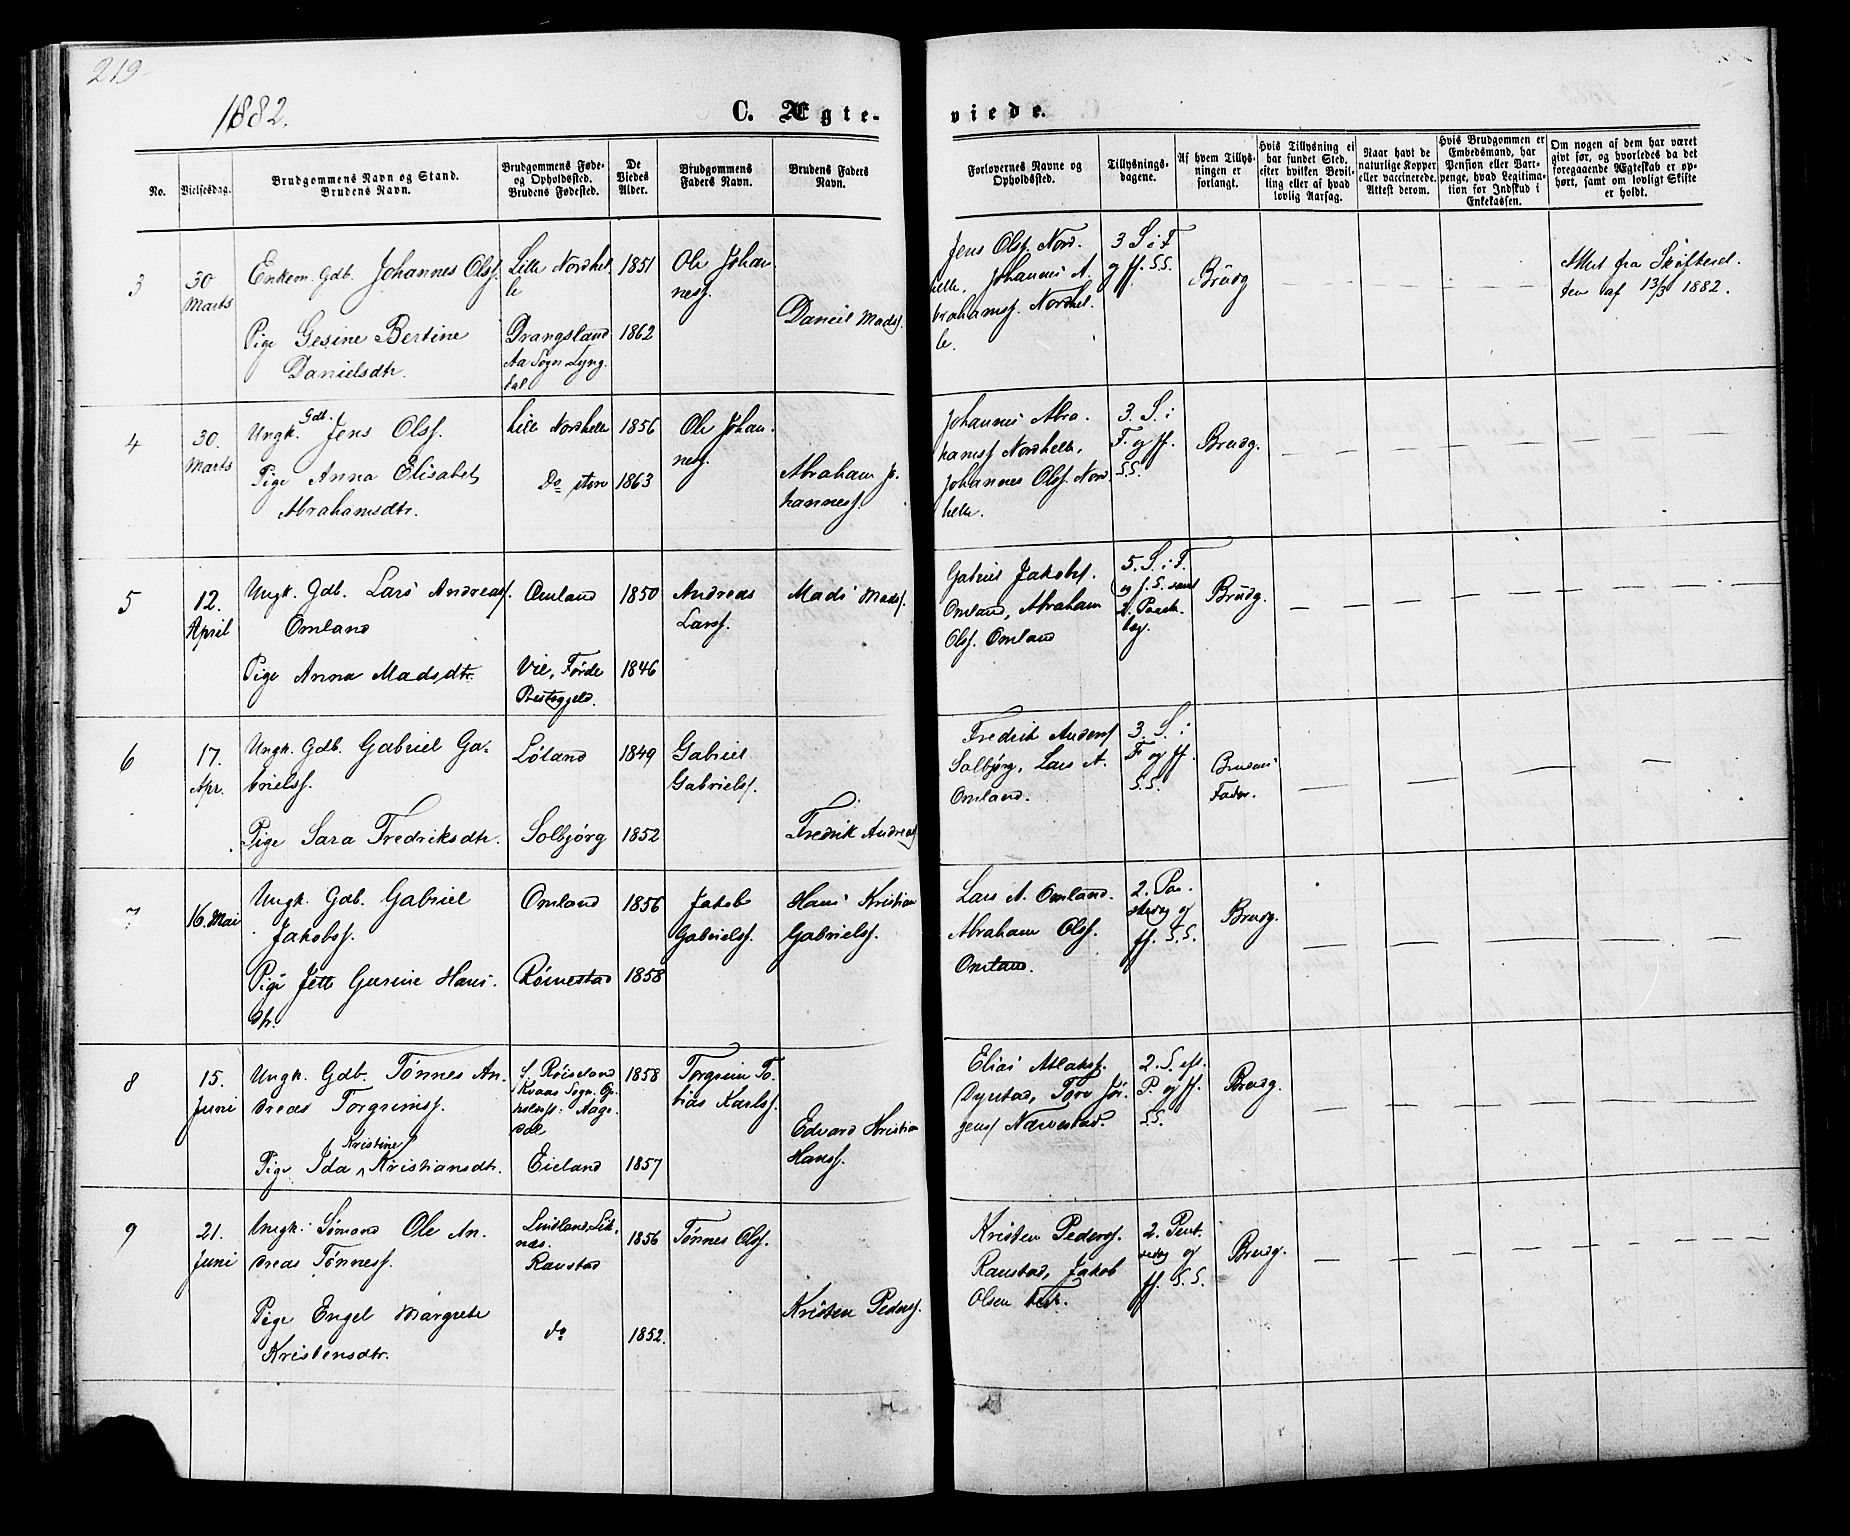 219
1882.
C. Ægte-
viede.
No.
Vielsesdag.
Brudgommens Navn og Stand.
Brudens Navn.
Brudgommens Føde-
og Opholdssted.
Brudens Fødested.
De
Viedes
Alder.
Brudgommens
Faders Navn.
Brudens Faders
Navn.
Forlovernes Navne og
Opholdssted.
Tillysnings-
dagene.
Af hvem Tillys-
ningen er
forlangt.
Hvis Tillysning ei
har fundet Sted,
efter hvilken Bevil-
ling eller af hvad
lovlig Aarsag.
Naar havt de
naturlige Kopper
eller vaccinerede.
Attest derom.
Hvis Brudgommen er
Embedsmand, har
Pension eller Vart-
penge, hvad Legitima-
tion for Indskud i
Enkekassen.
Om nogen af dem har været
gift før, og hvorledes da det
foregaaende Ægteskab er op-
hørt, samt om lovligt Skifte
er holdt.
3
30
Marts
Enkem. Gdb. Johannes Olss.
Pige Gesine Bertine
Danielsdtr.
Lille Nordhel
le
Drangsland
Aa Sogn Lyng
dal
1851
1862
Ole Johan
ness.
Daniel Madss.
Jens Olss. Nord.
helle, Johannes A.
brahamss. Nordhel.
le.
3 S. i F
og ff. S.S.
Brudg
Attest fra Skifteret
ten af 13/3 1882.
4
30.
Marts
Gdb.
Ungk. Jens Olss.
Pige Anna Elisabet
Abrahamsdtr.
Lille Nordhelle
Do store
1856
1863
Ole Johan.
ness.
Abraham Jo.
hanness.
Johannes Abra
hamss Nordhelle,
Johannes Olss. Nord
helle.
3. S. i
F. og ff.
S.S.
Brudg.
5
12.
April
Ungk. Gdb. Lars Andreass.
Omland
Pige Anna Madsdtr.
Omland
Vie, Førde
Prestegjeld.
1850
1846
Andreas
Larss.
Mads Madss.
Gabriel Jakobss.
Omland, Abraham
Olss. Omland
5. S. i F.
og f. S. samt
2. Paaske
dag.
Brudg.
6
17.
Apr.
Ungk. Gdb. Gabriel Ga-
brielss.
Pige Sara Fredriksdtr.
Løland
Solbjørg
1849
1852
Gabriel
Gabrielss.
Fredrik Andreass
Fredrik Anderss
Solbjørg, Lars A.
Omland.
3. S. i
F og ff.
S.S.
Brudens
Fader.
7
16. Mai
Ungk. Gdb. Gabriel
Jakobss.
Pige Jette Gurine Hans-
dtr.
Omland
Røinestad
1856
1858
Jakob
Gabrielss.
Hans Kristian
Gabrielss.
Lars A. Omland.
Abraham Olss.
Omland.
2. Paa-
skedag og
ff. S.S.
Brudg.
8
15.
Juni
Ungk. Gdb. Tønnes An-
dreas Torgrimss.
Kristine
Pige Ida Kristiansdtr.
Røiseland
Kvaas Sogn.
Eieland
1858
1857
Torgrim To
bias Karlss.
Edvard Kristian
Hanss.
Elias Atlakss.
Dyrstad, Tore Jør-
genss Nævestad.
2. S. eft.
P. og ff.
S.S.
Brudg.
9
21.
Juni
Ungk. Sømand Ole An-
dreas Tønness.
Pige Engel Margrete
Kristensdtr.
Lindland, Lik-
næs.
Raustad
do
1856
1852.
Tønnes Olss.
Kristen Pederss.
Kristen Pederss.
Raustad, Jakob
Olsen
2. Pint-
sedag og
ff. S.S.
Brudg.